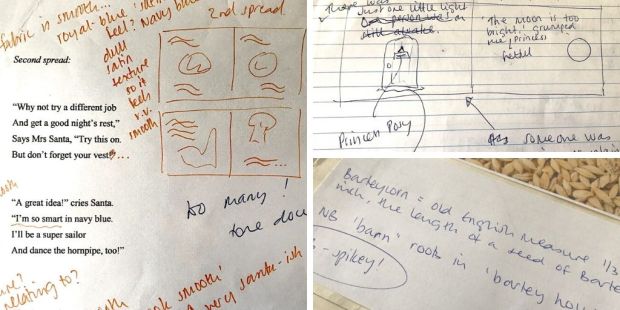 fabric is smooth...
royal-blue
feel? Navy blue
2nd spread
dull
satin
texture
so it
feels
v.v.
smooth
Second spread:
"Why not try a different job
And get a good night's rest,"
Says Mrs Santa, "Try this on.
But don't forget your vests...
"A great idea!" cries Santa.
"I'm so smart in navy blue.
I'll be a super sailor
And dance the hornpipe, too!"
too many!
tone dow
relating to?
smooth
a very santa-ish
There was
Just one little light
still awake.
Princess Posy
The moon is too
bright! grumped
the Princess
someone was
Barleycorn = old English measure 1/3
inch, the length of a seed of Barle
NB 'barn' roots in 'barley hou
- spikey!